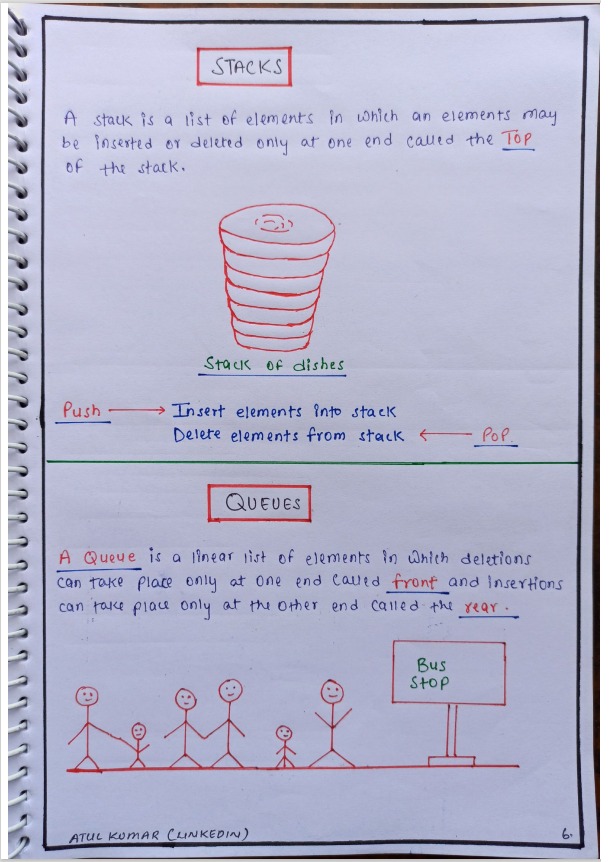 STACKS
A stack is a list of elements in which an elements may
be inserted or deleted only at one end called the Top
of the stack.
Stack of dishes
Push → Insert elements into stack
Delete elements from stack ← POP.
QUEUES
A Queue is a linear list of elements in which deletions
can take place only at one end called front and insertions
can take place only at the other end called the rear.
BUS
STOP
ATUL KUMAR (LINKEDIN)
6.